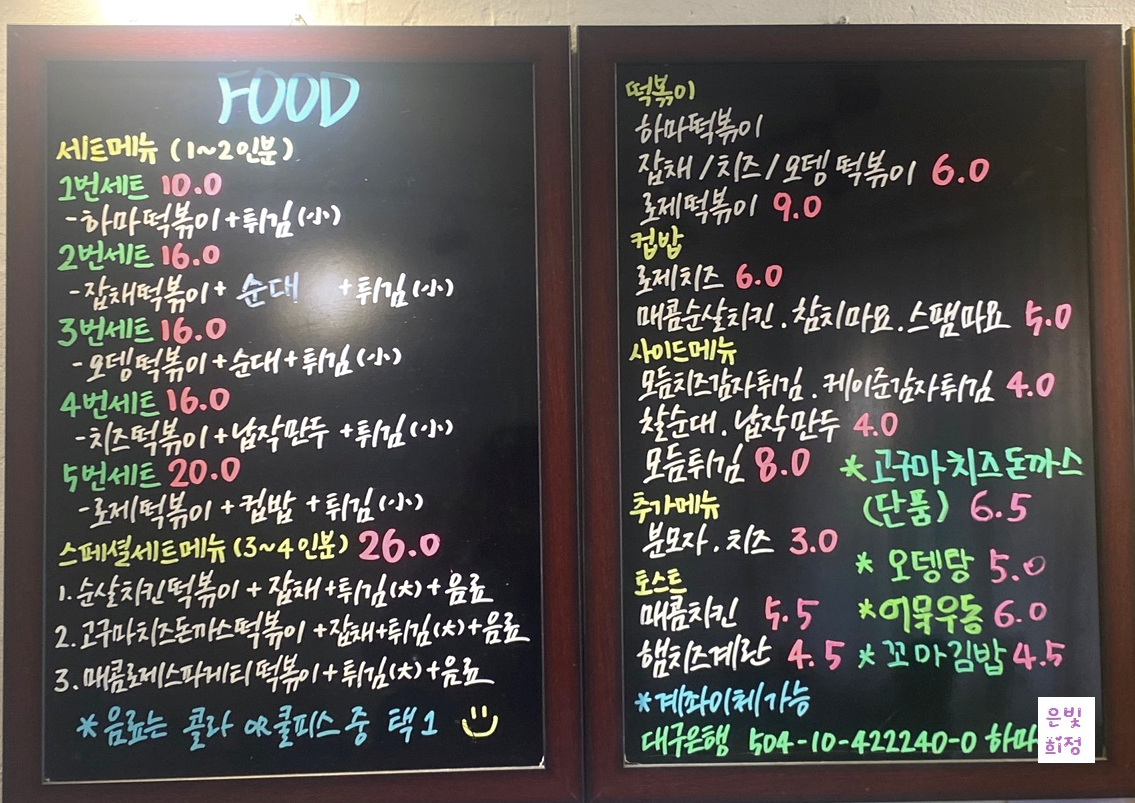 FOOD
세트메뉴 (1~2인분)
1번세트 10.0
-하마떡볶이+튀김(小)
2번세트 16.0
-잡채떡볶이+ 순대 +튀김(小)
3번세트 16.0
-오뎅떡볶이+순대+튀김(小)
4번세트 16.0
-치즈떡볶이+납작만두 +튀김(小)
5번세트 20.0
-로제떡볶이+컵밥 +튀김(小)
스페셜세트메뉴(3~4인분) 26.0
1.순살치킨떡볶이+잡채+튀김(大)+음료
2.고구마치즈돈까스떡볶이+잡채+튀김(大)+음료
3.매콤로제스파게티떡볶이+튀김(大)+음료
*음료는 콜라 OR쿨피스 중 택1
떡볶이
하마떡볶이
잡채/치즈/오뎅떡볶이 6.0
로제떡볶이 9.0
컵밥
로제치즈 6.0
매콤순살치킨.참치마요.스팸마요 5.0
사이드메뉴
모듬치즈감자튀김.케이준감자튀김 4.0
찰순대.납작만두 4.0
모듬튀김 8.0
추가메뉴
분모자.치즈 3.0
토스트
매콤치킨 5.5
햄치즈계란 4.5
*고구마치즈돈까스
(단품) 6.5
*오뎅탕 5.0
*어묵우동 6.0
*꼬마김밥 4.5
*계좌이체가능
대구은행 504-10-422240-0 하마
은빛
희정